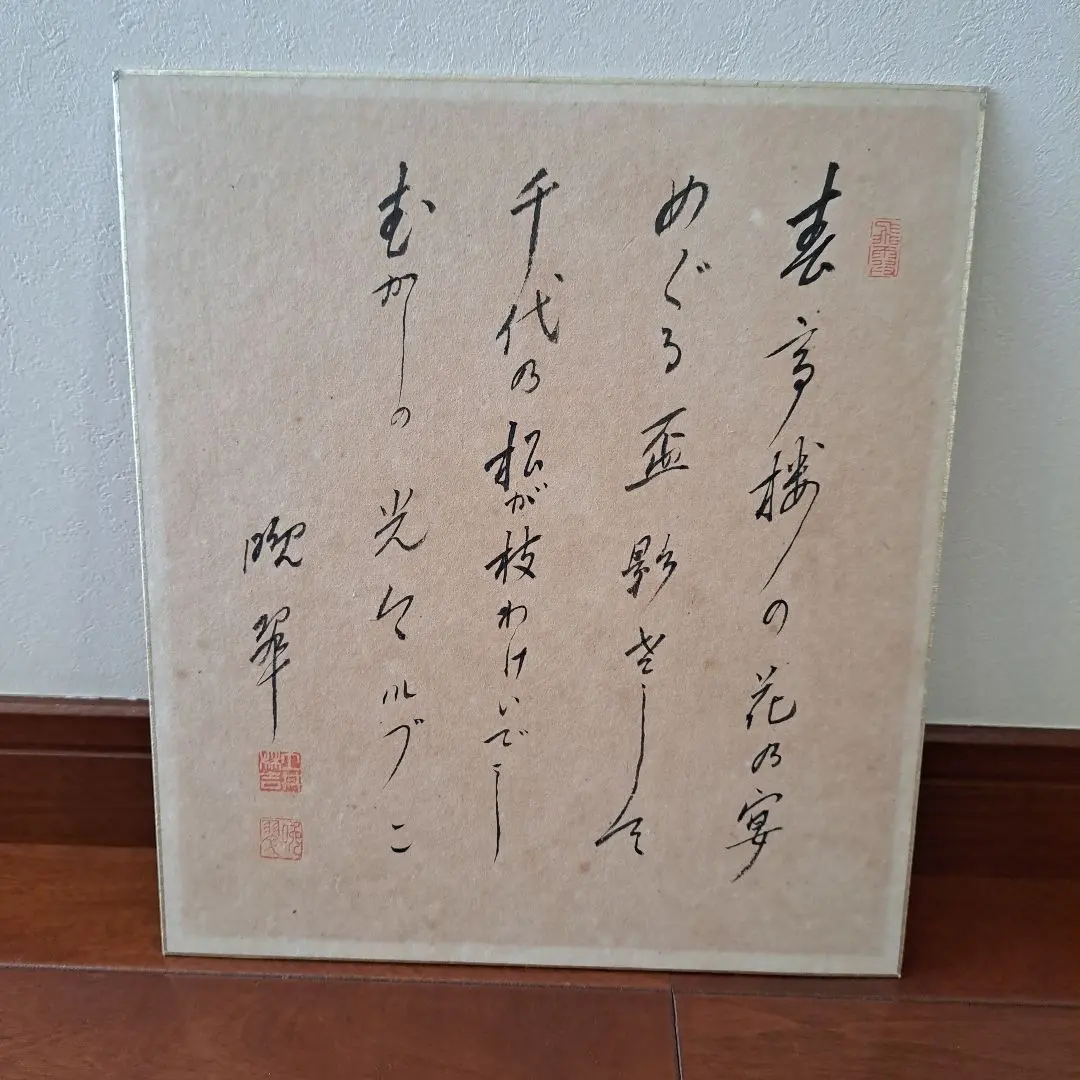 春高楼の花乃宴
めぐる盃影さして
千代乃松が枝わけいでし
むかしの光今いづこ
晩翠